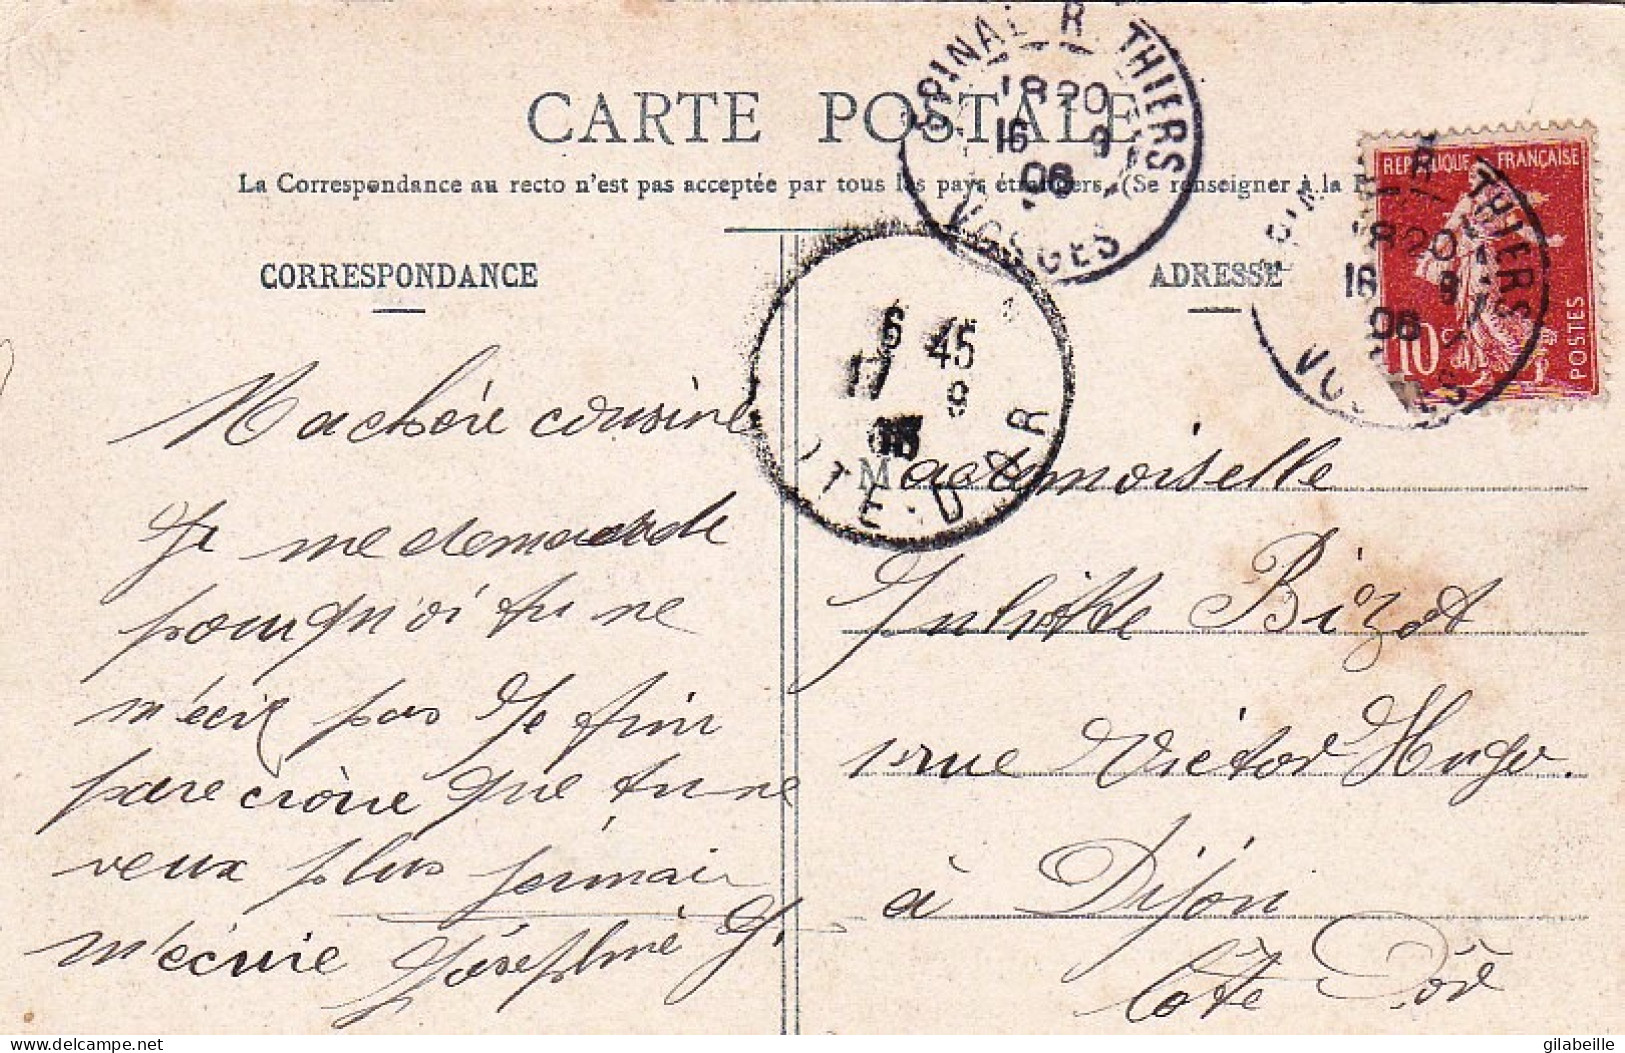 CARTE POSTALE
La Correspondance au recto n'est pas acceptée par tous les pays étrangers. (Se renseigner à la
CORRESPONDANCE
ADRESSE
SPINAL R. THIERS
18 20
16 9
06
VOSGES
REPUBLIQUE FRANÇAISE
10
POSTES
R THIERS
18 20
16 9
06
6 45
17 9
TE-D'OR
Ma chère cousine
Je me demande
pourquoi tu ne
m'écri pas Je fini
pare croire que tu ne
veux plus jamai
m'écrire Joséphine J.
Mademoiselle
Juliette Bizot
rue Victor Hugo.
à Dijon
Côte Dôr
delcampe.net
gilabeille